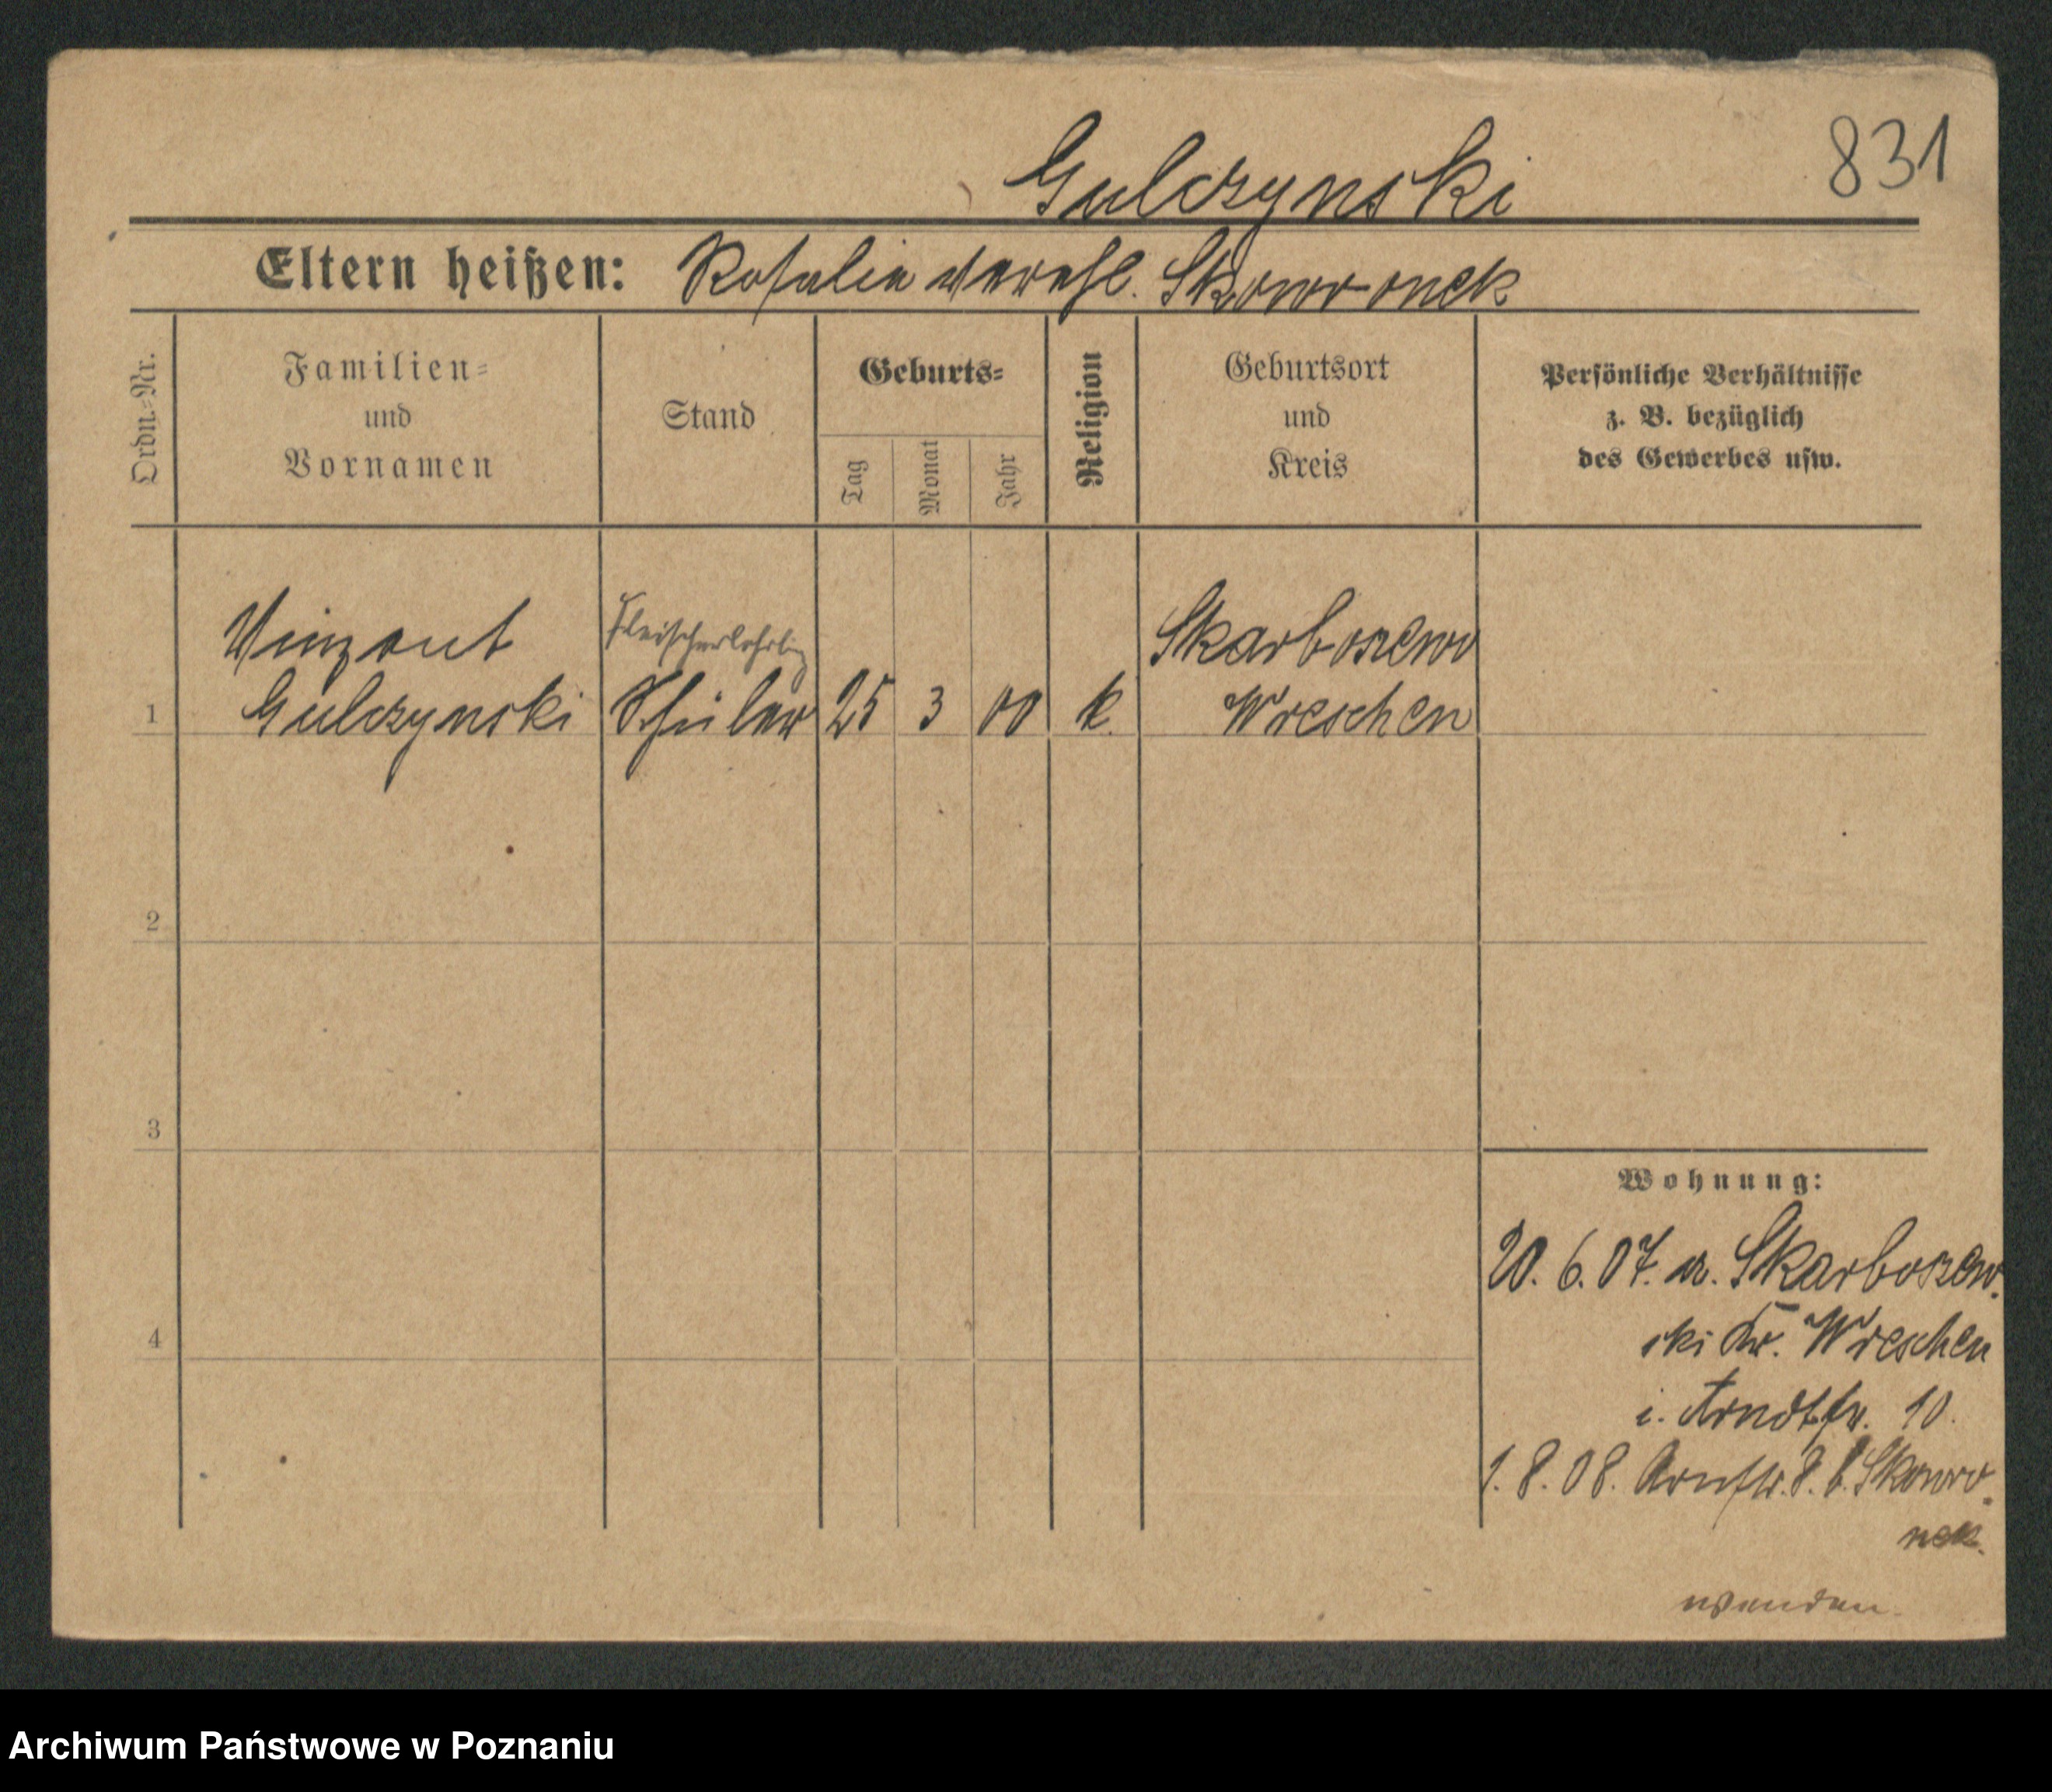 831
Gulczynski
Eltern heißen: Rosalia verehl. Skowronek
Ordn.-Nr.
Familien-
und
Vornamen
Stand
Geburts-
Tag
Monat
Jahr
Religion
Geburtsort
und
Kreis
Persönliche Verhältnisse
z. B. bezüglich
des Gewerbes usw.
Vinzent
Fleischerlehrling
Skarboszewo
1 Gulczynski Schüler 25 3 00 k. Wreschen
2
3
4
Wohnung:
20. 6. 07. a. Skarboszew-
ski Kr. Wreschen
i. Arndtstr. 10.
1. 8. 08. Arndtstr. 8. b. Skowro-
nek.
wenden.
Archiwum Państwowe w Poznaniu